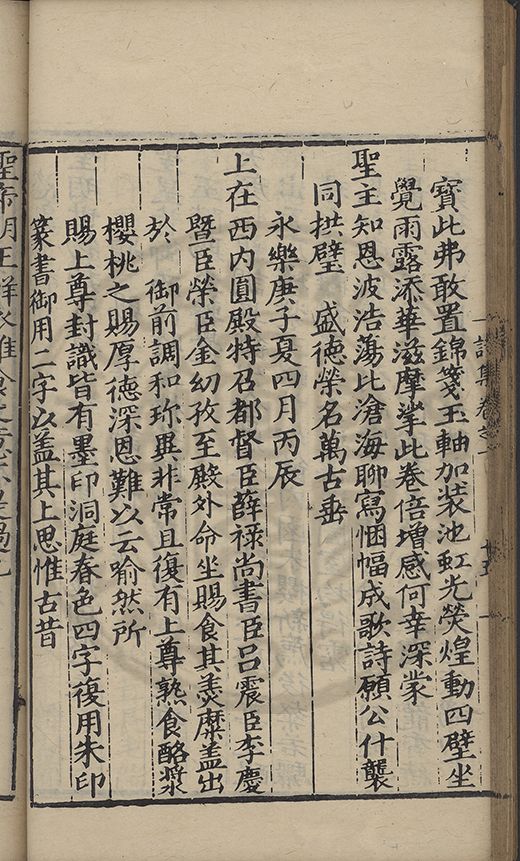 寶此弗敢置錦箋玉軸加装池虹光熒煌動四壁坐
覺雨露添華滋摩挲此卷倍增感何幸深蒙
聖主知恩波浩蕩比滄海聊寫悃愊成歌詩願公什襲
同拱璧 盛德榮名萬古垂
永樂庚子夏四月丙辰
上在西内圓殿特召都督臣薛禄尚書臣吕震臣李慶
暨臣榮臣金幼孜至殿外命坐賜食其羮糜盖出
於 御前調和珎異非常且復有上尊熟食酪漿
櫻桃之賜厚德深恩難以云喻然所
賜上尊封識皆有墨印洞庭春色四字復用朱印
篆書御用二字以盖其上思惟古昔
聖帝明王
詩集卷之一
廿五